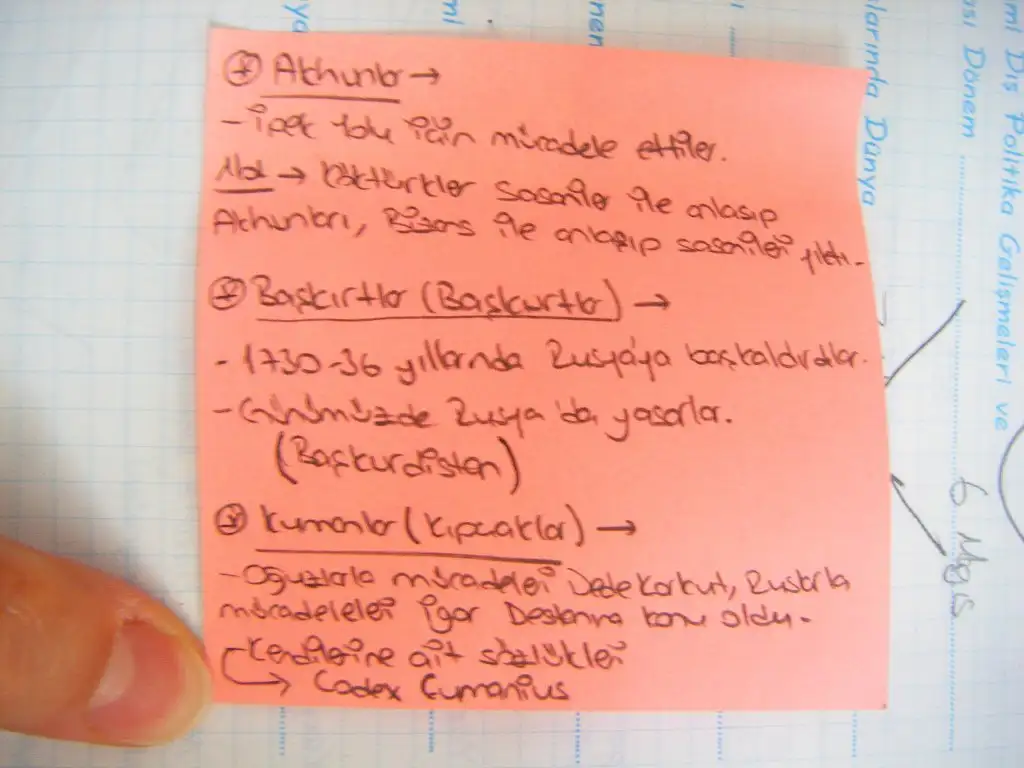 Akhunlar →
- İpek Yolu için mücadele ettiler.
Not → Köktürkler Sasaniler ile anlaşıp
Akhunları, Bizans ile anlaşıp sasanileri yıktı.
Başkırtlar (Başkurtlar) →
- 1730-36 yıllarında Rusya'ya başkaldırdılar.
- Günümüzde Rusya'da yaşarlar.
(Başkurdistan)
Kumanlar (Kıpçaklar) →
- Oğuzlarla mücadeleri Dede Korkut, Ruslarla
mücadeleleri İgor Destanına konu oldu.
Kendilerine ait sözlükleri
→ Codex Cumanius
mi Dış Politika Gelişmeleri ve
Dönem
larında Dünya
6 Mayıs